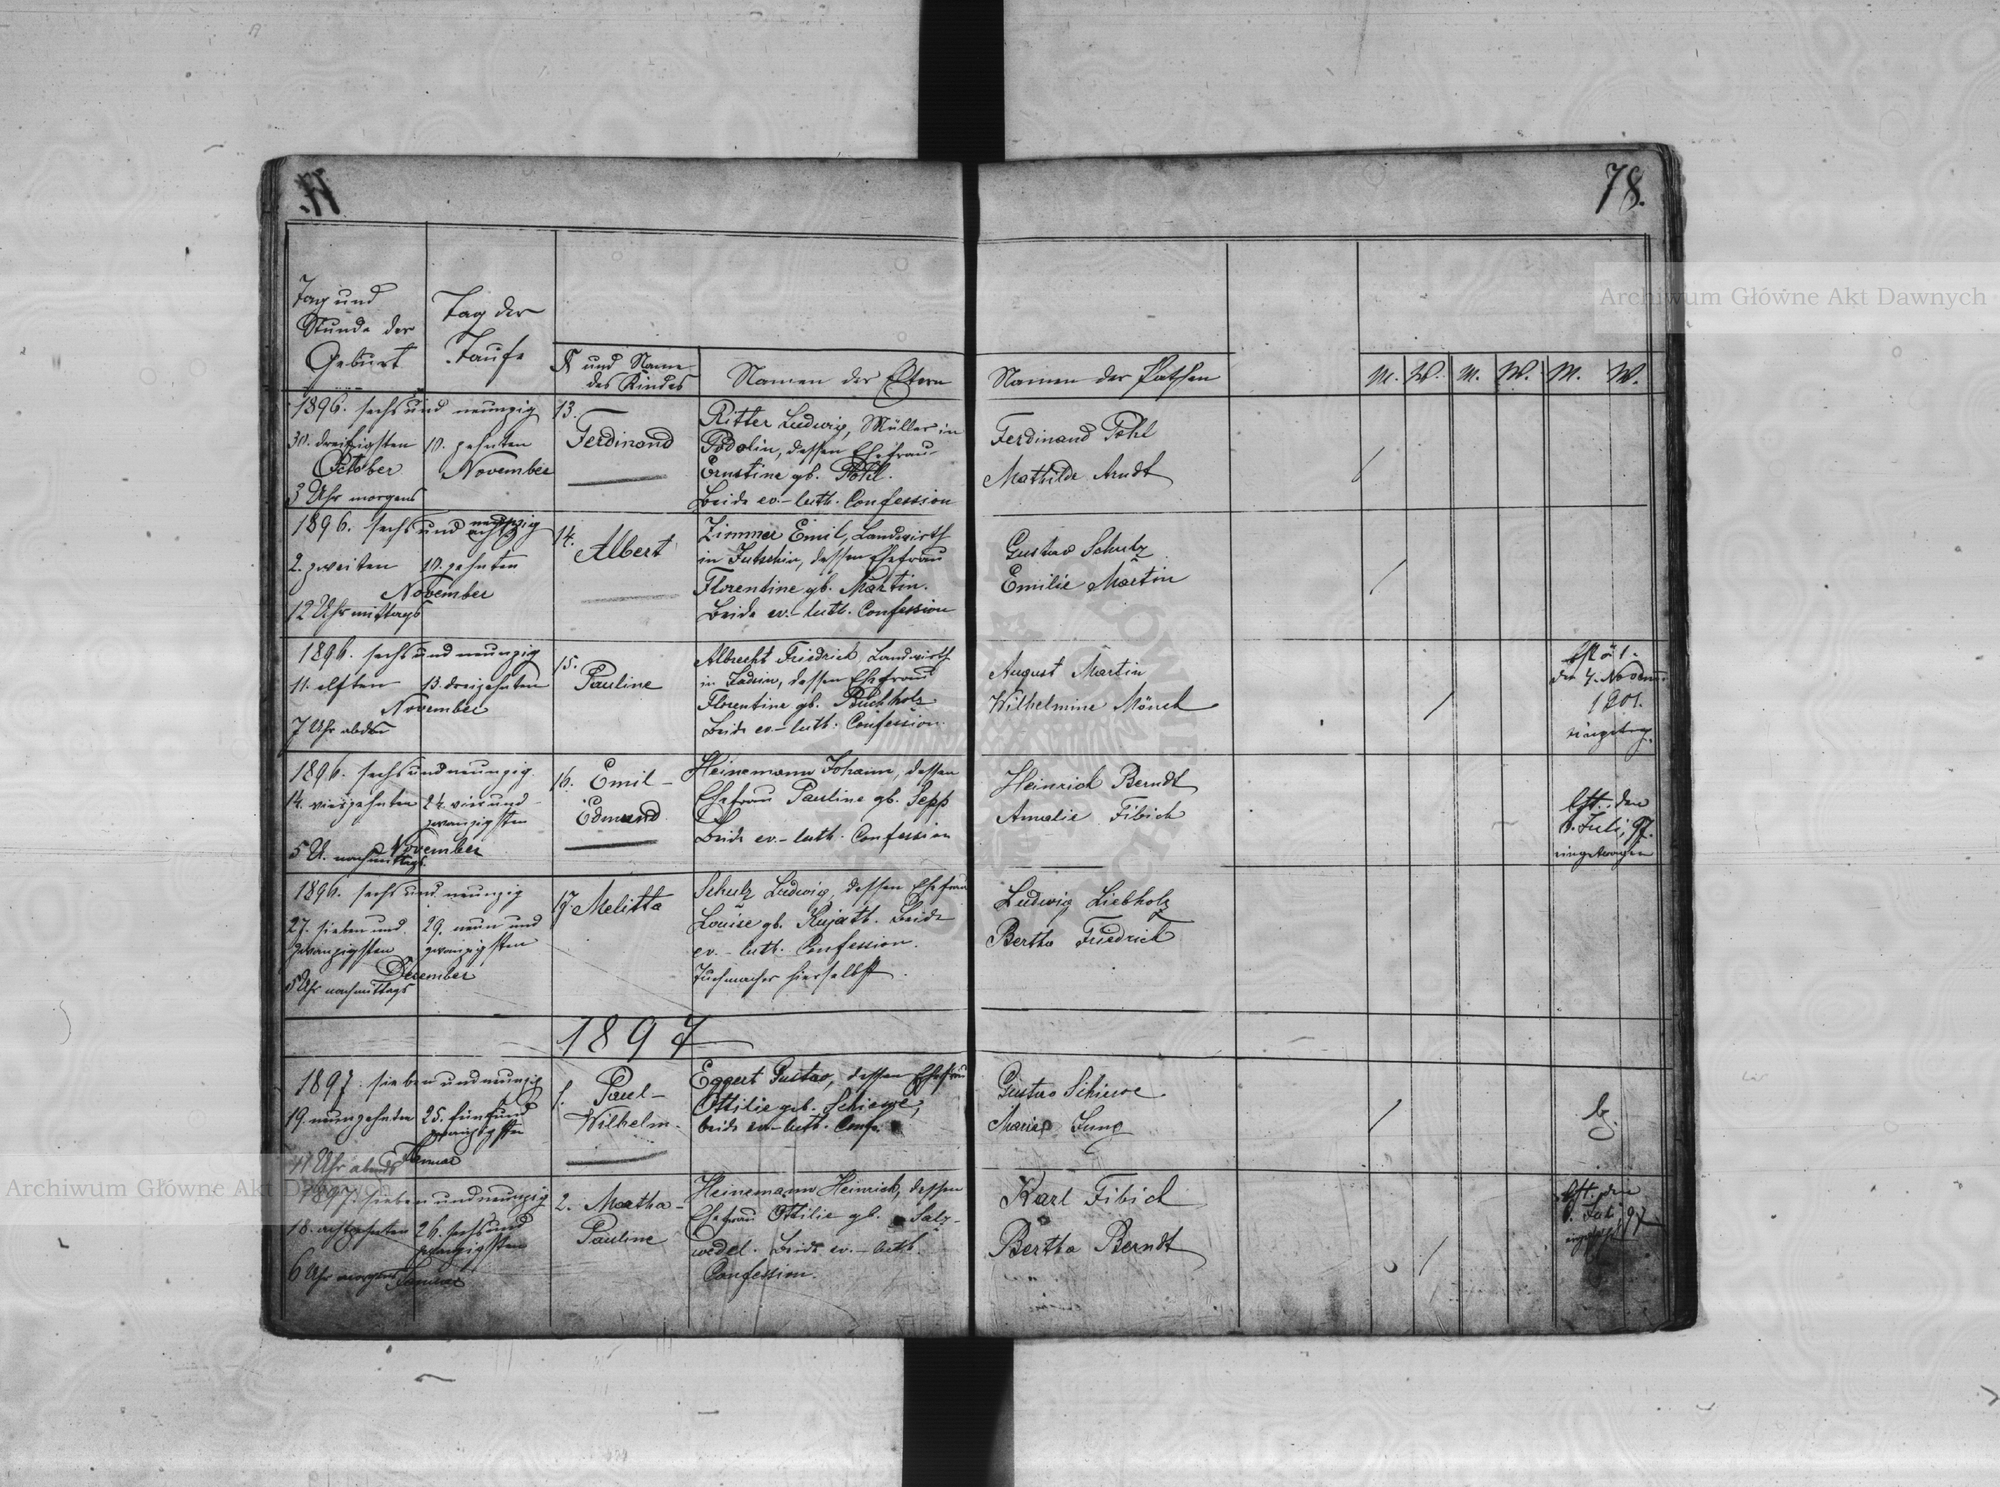 78.
Archiwum Główne Akt Dawnych
Tag und
Stunde der
Geburt
Tag der
Taufe
№ und Name
des Kindes
Namen der Eltern
Namen der Pathen
M. W. M. W. M. W.
1896. sechs und neunzig
30. dreißigsten
October
3 Uhr morgens
10. zehnten
November
13.
Ferdinand
Ritter Ludwig, Müller in
Podolin, dessen Ehefrau
Ernstine gb. Pohl.
Beide ev.-luth. Confession
Ferdinand Pohl
Mathilde Arndt
1896. sechs und neunzig
2. zweiten
10. zehnten
November
12 Uhr mittags
14.
Albert
Zimmer Emil, Landwirth
in Jutschin, dessen Ehefrau
Florentine gb. Martin.
Beide ev.-luth. Confession
Gustav Schulz
Emilie Martin
1896. sechs und neunzig
11. elften
13. dreizehnten
November
7 Uhr abds
15.
Pauline
Albrecht Friedrich Landwirth
in, dessen Ehefrau
Florentine gb. Buchholz
Beide ev.-luth. Confession.
August Martin
Wilhelmine Mönch
den 4. November
1901.
eingetrag.
1896. sechs und neunzig.
14. vierzehnten
24. vier und
zwanzigsten
November
5 U. nachmittags.
16. Emil-
Edmund
Heinemann Johann, dessen
Ehefrau Pauline gb. Sepp
Beide ev.-luth. Confession
Heinrich Berndt
Amalie Fibich
den
Juli, 97.
eingetragen
1896. sechs und neunzig
27. sieben und
zwanzigsten
29. neun und
zwanzigsten
December
5 Uhr nachmittags
17 Melitta
Schulz Ludwig, dessen Ehefrau
Louise gb. Kujath. Beide
ev.-luth. Confession.
Tuchmacher hierselbst.
Ludwig Liebholz
Bertha Friedrich
1897
1897. sieben und neunzig
19. neunzehnten
25. fünf und
zwanzigsten
Januar
11 Uhr abends
1. Paul-
Wilhelm.
Eggert Gustav, dessen Ehefrau
Ottilie geb. Schiewe,
beide ev-luth. Conf.
Gustav Schiewe
Marie Jung
1897. sieben und neunzig
18. achtzehnten
26. sechs und
zwanzigsten
Januar
6 Uhr morgens
2. Martha-
Pauline
Heinemann Heinrich, dessen
Ehefrau Ottilie gb. Salz-
wedel. Beide ev.-luth.
Confession.
Karl Fibich
Bertha Berndt
den
Juli 97
Archiwum Główne Akt Dawnych